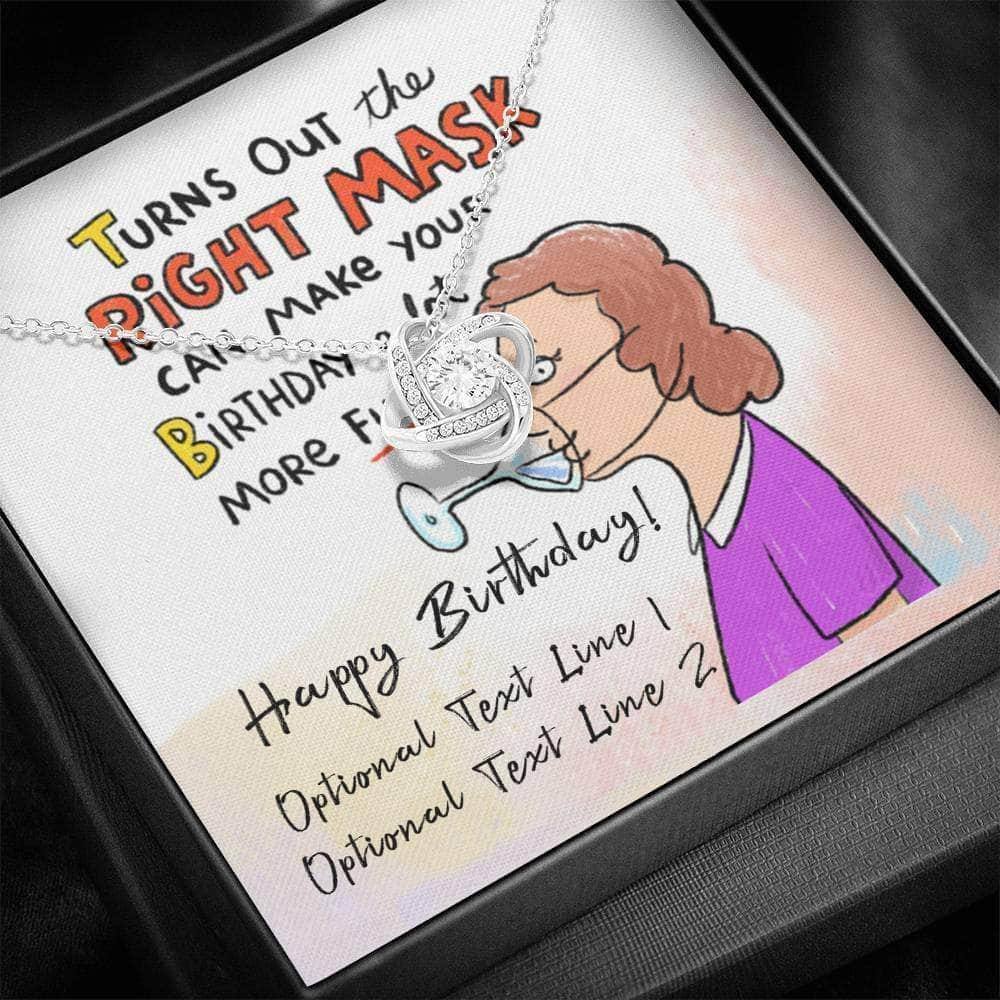 TURNS OUT the
RiGHT MASK
CAN MAKE YOUR
BiRTHDAY a lot
MORE
Happy Birthday!
Optional Text Line 1
Optional Text Line 2